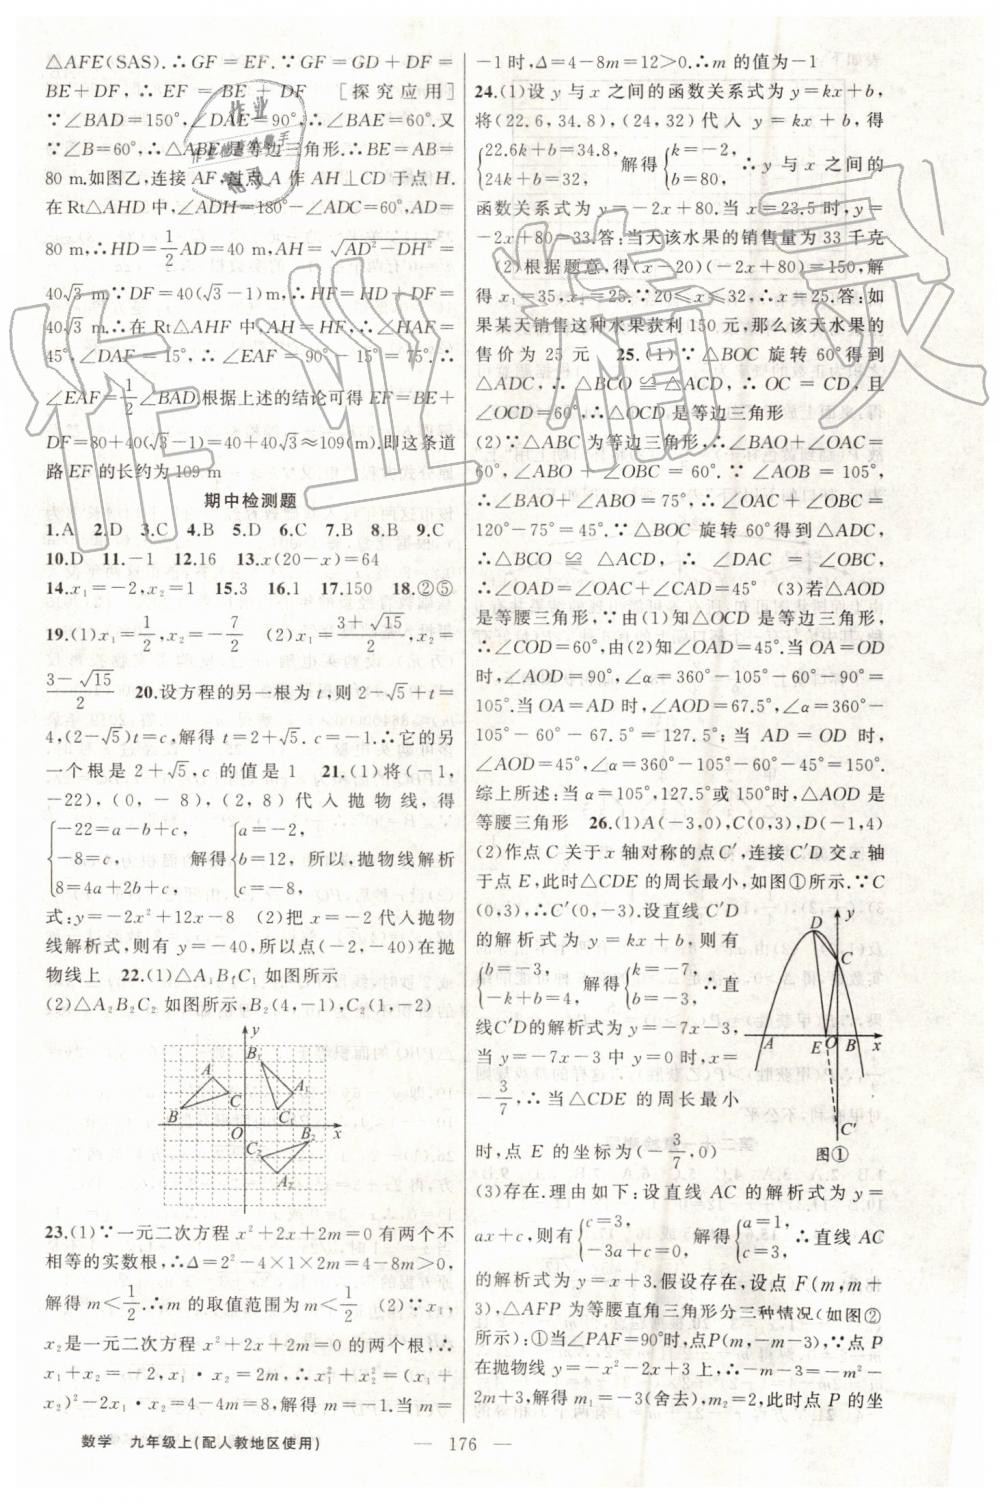 △AFE(SAS).∴GF=EF.∵GF=GD+DF=
BE+DF,∴EF=BE+DF [探究应用]
∵∠BAD=150°,∠DAE=90°,∴∠BAE=60°.又
∵∠B=60°,∴△ABE是等边三角形.∴BE=AB=
80 m.如图乙,连接AF,过点A作AH⊥CD于点H.
在Rt△AHD中,∠ADH=180°-∠ADC=60°,AD=
80 m,∴HD=1/2AD=40 m,AH=√(AD²-DH²)=
40√3 m.∵DF=40(√3-1)m,∴HF=HD+DF=
40√3 m.∴在Rt△AHF中,AH=HF,∴∠HAF=
45°,∠DAF=15°,∴∠EAF=90°-15°=75°.∴
∠EAF=1/2∠BAD.根据上述的结论可得EF=BE+
DF=80+40(√3-1)=40+40√3≈109(m).即这条道
路EF的长约为109 m
期中检测题
1.A 2.D 3.C 4.B 5.D 6.C 7.B 8.B 9.C
10.D 11.-1 12.16 13.x(20-x)=64
14.x₁=-2,x₂=1 15.3 16.1 17.150 18.②⑤
19.(1)x₁=1/2,x₂=-7/2 (2)x₁=(3+√15)/2,x₂=
(3-√15)/2 20.设方程的另一根为t,则2-√5+t=
4,(2-√5)t=c,解得t=2+√5.c=-1.∴它的另
一个根是2+√5,c的值是1 21.(1)将(-1,
-22),(0,-8),(2,8)代入抛物线,得
{-22=a-b+c, {a=-2,
-8=c, 解得 b=12, 所以,抛物线解析
8=4a+2b+c, c=-8,
式:y=-2x²+12x-8 (2)把x=-2代入抛物
线解析式,则有y=-40,所以点(-2,-40)在抛
物线上 22.(1)△A₁B₁C₁如图所示
(2)△A₂B₂C₂如图所示,B₂(4,-1),C₂(1,-2)
y
B₁
A
A₁
C
B
C₁
O
x
B₂
C₂
A₂
23.(1)∵一元二次方程x²+2x+2m=0有两个不
相等的实数根,∴Δ=2²-4×1×2m=4-8m>0,
解得m<1/2.∴m的取值范围为m<1/2 (2)∵x₁,
x₂是一元二次方程x²+2x+2m=0的两个根,∴
x₁+x₂=-2,x₁·x₂=2m,∴x₁²+x₂²=(x₁+
x₂)²-2x₁·x₂=4-4m=8,解得m=-1.当m=
-1时,Δ=4-8m=12>0.∴m的值为-1
24.(1)设y与x之间的函数关系式为y=kx+b,
将(22.6,34.8),(24,32)代入y=kx+b,得
{22.6k+b=34.8, 解得 {k=-2, ∴y与x之间的
24k+b=32, b=80,
函数关系式为y=-2x+80.当x=23.5时,y=
-2x+80=33.答:当天该水果的销售量为33千克
(2)根据题意,得(x-20)(-2x+80)=150,解
得x₁=35,x₂=25.∵20≤x≤32,∴x=25.答:如
果某天销售这种水果获利150元,那么该天水果的
售价为25元 25.(1)∵△BOC旋转60°得到
△ADC,∴△BOC≌△ACD,∴OC=CD,且
∠OCD=60°,∴△OCD是等边三角形
(2)∵△ABC为等边三角形,∴∠BAO+∠OAC=
60°,∠ABO+∠OBC=60°.∵∠AOB=105°,
∴∠BAO+∠ABO=75°,∴∠OAC+∠OBC=
120°-75°=45°.∵△BOC旋转60°得到△ADC,
∴△BCO≌△ACD,∴∠DAC=∠OBC,
∴∠OAD=∠OAC+∠CAD=45° (3)若△AOD
是等腰三角形,∵由(1)知△OCD是等边三角形,
∴∠COD=60°,由(2)知∠OAD=45°.当OA=OD
时,∠AOD=90°,∠α=360°-105°-60°-90°=
105°.当OA=AD时,∠AOD=67.5°,∠α=360°-
105°-60°-67.5°=127.5°;当AD=OD时,
∠AOD=45°,∠α=360°-105°-60°-45°=150°.
综上所述:当α=105°,127.5°或150°时,△AOD是
等腰三角形 26.(1)A(-3,0),C(0,3),D(-1,4)
(2)作点C关于x轴对称的点C′,连接C′D交x轴
于点E,此时△CDE的周长最小,如图①所示.∵C
(0,3),∴C′(0,-3).设直线C′D
的解析式为y=kx+b,则有
{b=-3, 解得 {k=-7, ∴直
-k+b=4, b=-3,
线C′D的解析式为y=-7x-3,
当y=-7x-3中y=0时,x=
-3/7,∴当△CDE的周长最小
时,点E的坐标为(-3/7,0)
D
y
C
A
E
O
B
x
C′
图①
(3)存在.理由如下:设直线AC的解析式为y=
ax+c,则有{c=3, 解得 {a=1, ∴直线AC
-3a+c=0, c=3,
的解析式为y=x+3.假设存在,设点F(m,m+
3),△AFP为等腰直角三角形分三种情况(如图②
所示):①当∠PAF=90°时,点P(m,-m-3),∵点P
在抛物线y=-x²-2x+3上,∴-m-3=-m²-
2m+3,解得m₁=-3(舍去),m₂=2,此时点P的坐
数学 九年级上(配人教地区使用)
— 176 —
作业精灵
作业